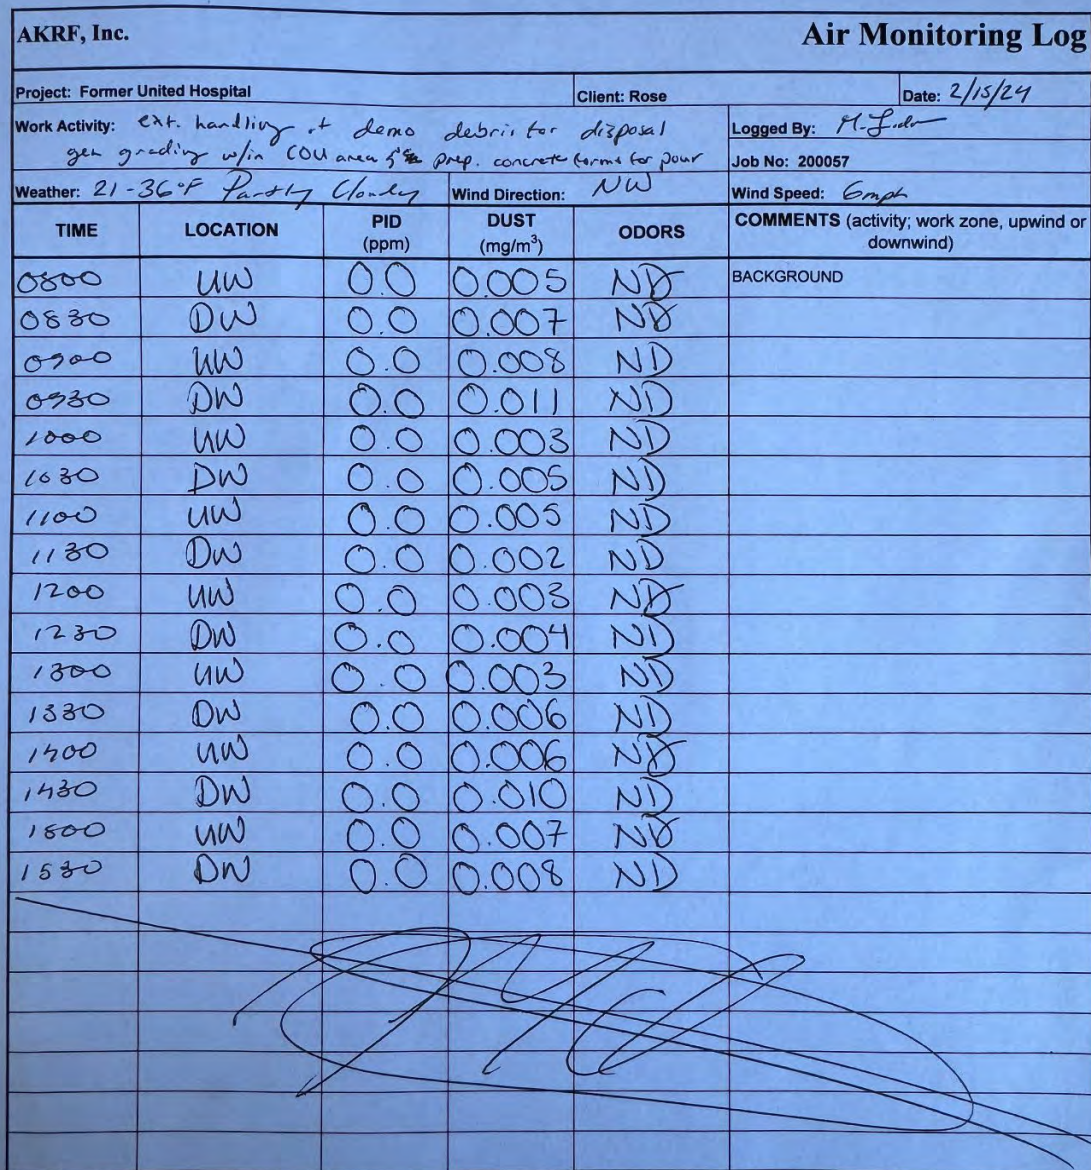 AKRF, Inc. Air Monitoring Log
Project: Former United Hospital Client: Rose Date: 2/15/24
Work Activity: ext. handling of demo debris for disposal Logged By: M.
gen grading w/in COU area prep. concrete forms for pour Job No: 200057
Weather: 21-36°F Partly Cloudy Wind Direction: NW Wind Speed: 6mph
TIME LOCATION PID (ppm) DUST (mg/m³) ODORS COMMENTS (activity; work zone, upwind or downwind)
0800 UW 0.0 0.005 ND BACKGROUND
0830 DW 0.0 0.007 ND
0900 UW 0.0 0.008 ND
0930 DW 0.0 0.011 ND
1000 UW 0.0 0.003 ND
1030 DW 0.0 0.005 ND
1100 UW 0.0 0.005 ND
1130 DW 0.0 0.002 ND
1200 UW 0.0 0.003 ND
1230 DW 0.0 0.004 ND
1300 UW 0.0 0.003 ND
1330 DW 0.0 0.006 ND
1400 UW 0.0 0.006 ND
1430 DW 0.0 0.010 ND
1500 UW 0.0 0.007 ND
1530 DW 0.0 0.008 ND